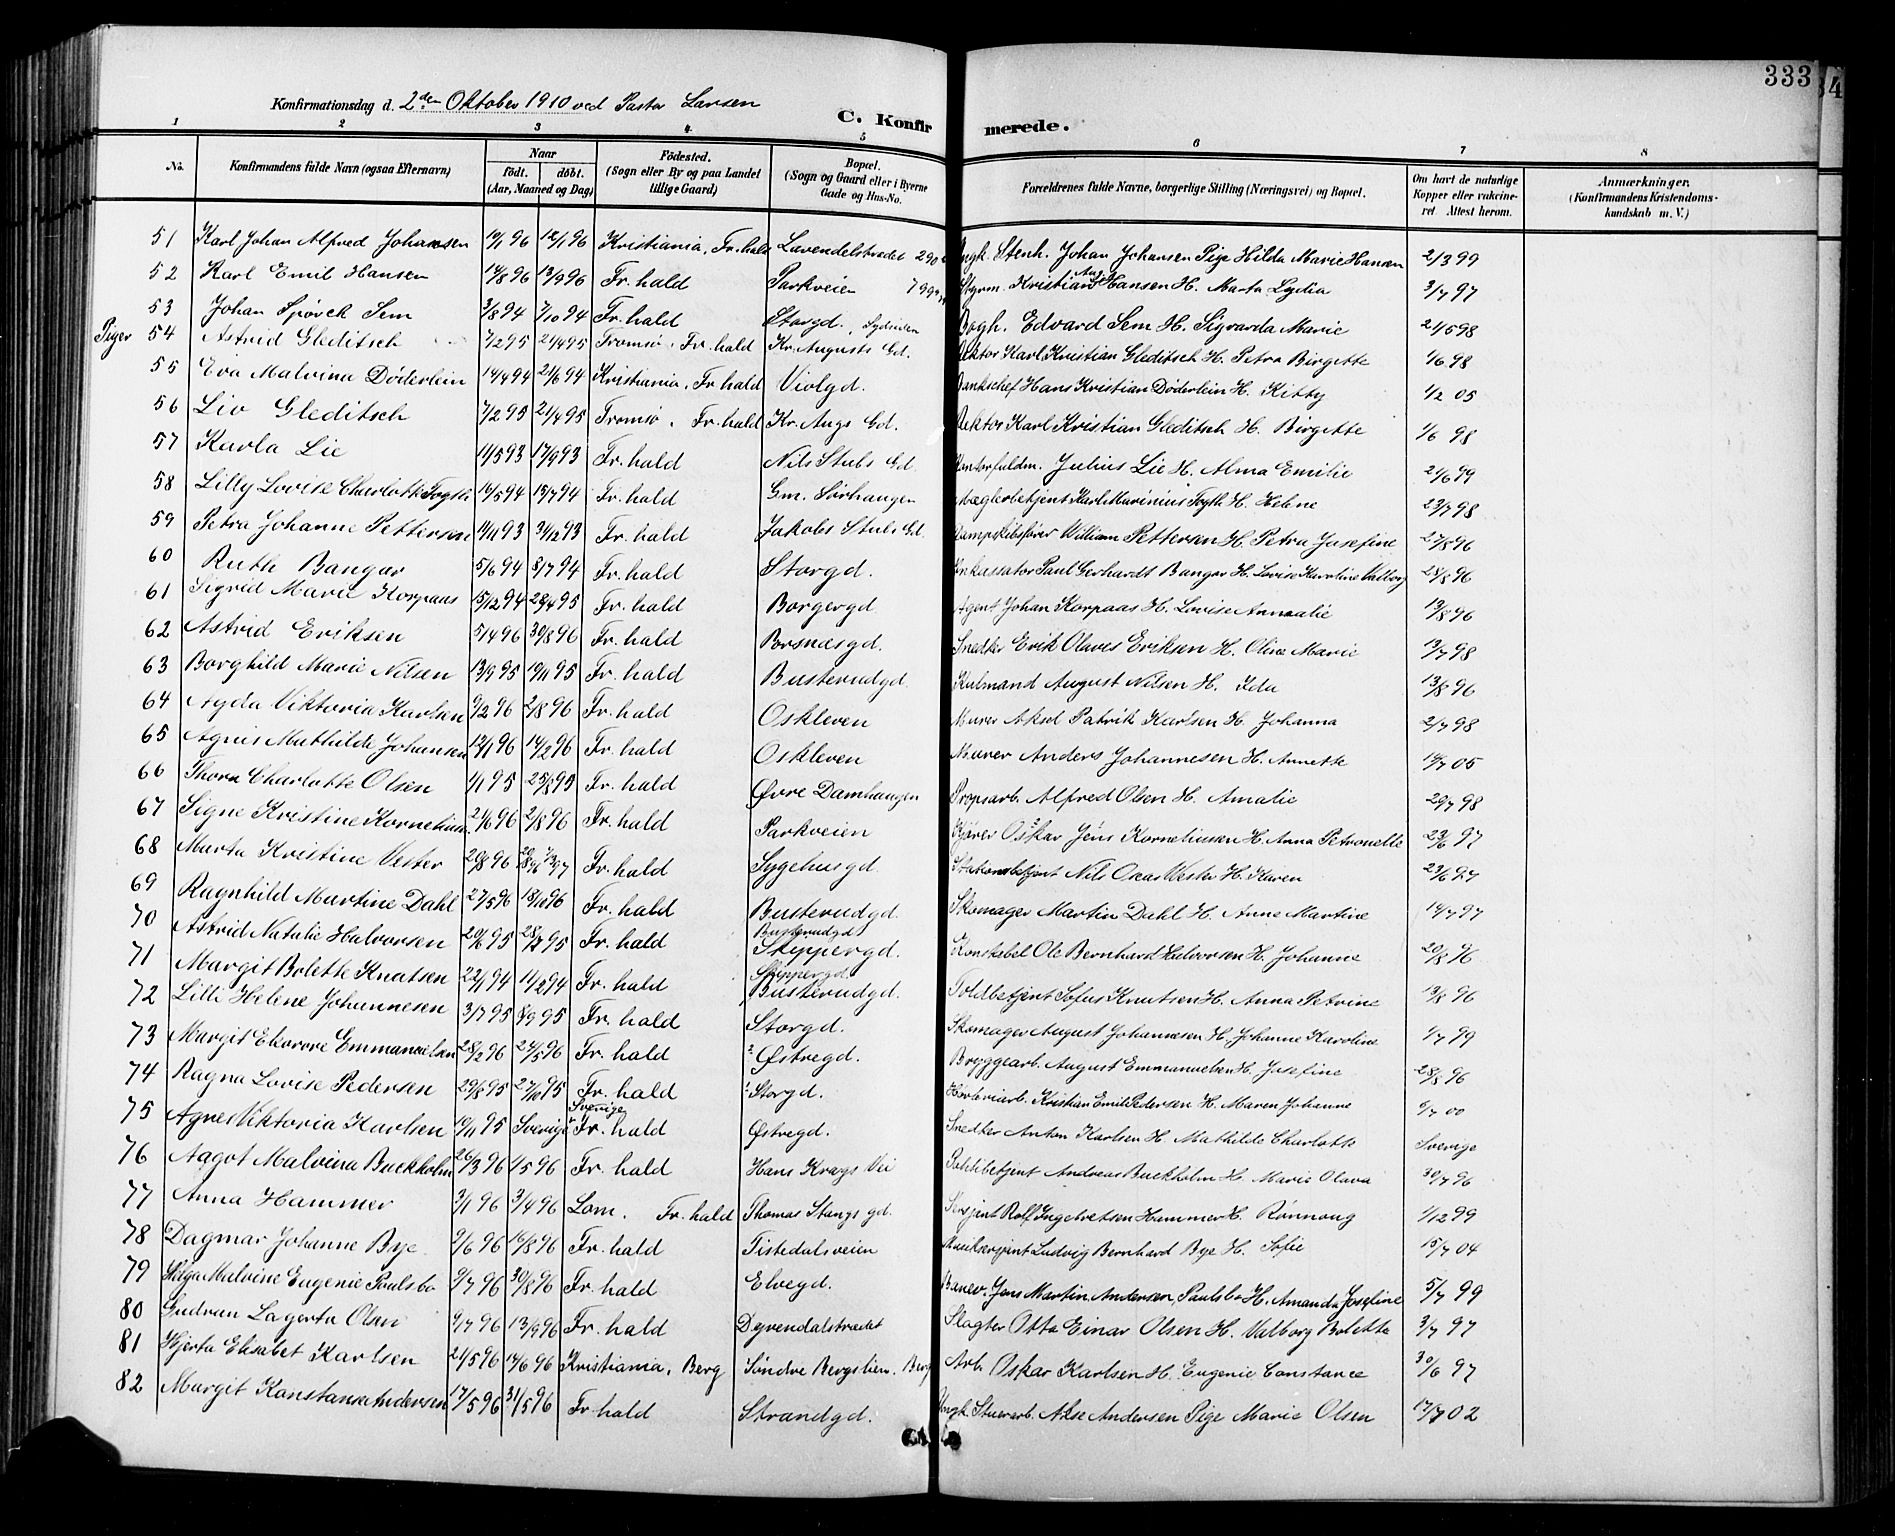 333
34
Konfirmationsdag d. 2den Oktober 1910 ved Pastor Larsen
C. Konfirmerede.
1 2 3 4 5 6 7 8
No. Konfirmandens fulde Navn (ogsaa Efternavn) Naar födt. döbt. (Aar, Maaned og Dag) Födested. (Sogn eller By og paa Landet tillige Gaard) Bopæl. (Sogn og Gaard eller i Byerne Gade og Hus-No. Forældrenes fulde Navne, borgerlige Stilling (Næringsvei) og Bopæl. Om havt de naturlige Kopper eller vakcineret Attest herom. Anmærkninger. (Konfirmandens Kristendomskundskab m. V.)
51 Karl Johan Alfred Johansen 12/1 96 Kristiania, Fr.hald Lavendelstrædet 290 Ungk. Stenh. Johan Johansen Pige Hilda Marie Hansen 2/3 99
52 Karl Emil Hansen 14/8 96 13/9 96 Fr.hald Parkveien Styrm. Kristian Aug. Hansen H. Marta Lydia 3/7 97
53 Johan Spörck Sem 3/8 94 7/10 94 Fr.hald Storgd. Sydsiden Bogh. Edvard Sem H. Sigvarda Marie 21/5 98
Piger 54 Astrid Gleditsch 7/2 95 21/4 95 Tromsø, Fr.hald Kr. Augusts Gd. Rektor Karl Kristian Gleditsch H. Petra Birgette 1/6 98
55 Eva Malvina Döderlein 14/4 94 21/6 94 Kristiania, Fr.hald Violgd. Bankchef Hans Kristian Döderlein H. Kitty 1/2 05
56 Liv Gleditsch 7/2 95 21/4 95 Tromsø, Fr.hald Kr. Augs Gd. Rektor Karl Kristian Gleditsch H. Birgette 1/6 98
57 Karla Lie 11/5 93 17/9 93 Fr.hald Nils Stubs Gd. Kontorfuldm. Julius Lie H. Alma Emilie 21/6 99
58 Lilly Lovise Charlotte Fogth 14/5 94 15/7 94 Fr.hald Gm. Sørhaugen Mæglerbetjent Karl Marinius Fogth H. Helene 23/7 98
59 Petra Johanne Pettersen 14/11 93 31/12 93 Fr.hald Jakobs Stubs Gd. Dampskibsfører William Pettersen H. Petra Josefine 27/8 96
60 Ruth Bangar 5/6 94 8/7 94 Fr.hald Storgd. Inkassator Paul Gerhardt Bangar H. Lovise Karoline Valborg 28/8 96
61 Sigrid Marie Korpaas 15/12 94 28/4 95 Fr.hald Borgergd Agent Johan Korpaas H. Lovise Annalie 13/8 96
62 Astrid Eriksen 5/4 96 30/8 96 Fr.hald Borsnæsgd. Snedker Erik Olaves Eriksen H. Olive Marie 13/7 98
63 Borghild Marie Nilsen 13/9 95 19/11 95 Fr.hald Busterudgd. Kulmand August Nilsen H. Ida 13/8 96
64 Agda Viktoria Karlsen 9/2 96 2/8 96 Fr.hald Oskleven Murer Aksel Patrik Karlsen H. Johanna 2/7 98
65 Agnis Mathilde Johansen 12/1 96 14/2 96 Fr.hald Oskleven Murer Anders Johannesen H. Annette 14/7 05
66 Thora Charlotte Olsen 1/1 95 25/8 95 Fr.hald Øvre Damhaugen Propsarb. Alfred Olsen H. Amalie 29/7 98
67 Signe Kristine Korneliusen 21/6 96 2/8 96 Fr.hald Parkveien Kjører Oskar Jens Korneliussen H. Anna Petronelle 23/6 97
68 Marta Kristine Vester 20/8 96 Fr.hald Sygehusgd. Stationsbetjent Nils Oscar Wester H. Karen 23/6 97
69 Ragnhild Martine Dahl 27/5 96 18/10 96 Fr.hald Busterudgd. Skomager Martin Dahl H. Anne Martine 14/7 97
70 Astrid Natalie Halvorsen 20/6 95 28/7 95 Fr.hald Busterudgd Skippergd. Konstabel Ole Bernhard Halvorsen H. Johanne 20/8 96
71 Margit Bolette Knutsen 22/1 94 11/2 94 Fr.hald Skippergd. Busterudgd. Toldbetjent Sofus Knutsen H. Anna Petrine 13/8 96
72 Lilli Helene Johannesen 3/7 95 8/9 95 Fr.hald Storgd. Skomager August Johannesen H. Johanne Karoline 1/7 99
73 Margit Ekorore Emmanuelsen 28/2 96 24/5 96 Fr.hald Østregd. Bryggearb. August Emmanuelsen H. Josefine 28/8 96
74 Ragna Lovise Pedersen 29/8 95 27/10 95 Fr.hald Storgd. Kristian Emil Pedersen H. Maren Johanne 6/7 00
75 Agnes Viktoria Karlsen 19/11 95 Sverige Sverige Fr.hald Østregd. Snedker Anton Karlsen H. Mathilde Charlotte Sverige
76 Aagot Malvina Buckholm 26/3 96 1/5 96 Fr.hald Hans Krags Vei Politibetjent Andreas Buckholm H. Marie Olava 30/7 96
77 Anna Hammer 3/1 96 3/4 96 Lom. Fr.hald Thomas Stangs gd. Sersjent Rolf Ingebretsen Hammer H. Rønnoug 1/12 99
78 Dagmar Johanne Bye 9/6 96 16/8 96 Fr.hald Tistedalsveien Musiksersjent Ludvig Bernhard Bye H. Sofie 15/7 04
79 Helga Malvine Eugenie Paulsbo 9/7 96 30/8 96 Fr.hald Elvegd. Banev. Jens Martin Andersen Paulsbo H. Amanda Josefine 5/7 99
80 Gudrun Lagerta Olsen 9/7 96 13/9 96 Fr.hald Dyrendalstrædet Slagter Otto Einar Olsen H. Valborg Bolette 3/7 97
81 Hjerta Elisabet Karlsen 21/5 96 14/6 96 Kristiania, Berg Söndre Bergslien, Berg Arb. Oskar Karlsen H. Eugenie Constance 30/6 97
82 Margit Konstanse Andersen 17/5 96 31/5 96 Fr.hald Strandgd. Ungk. Stuerarb. Aksel Andersen Pige Marie Olsen 17/7 02